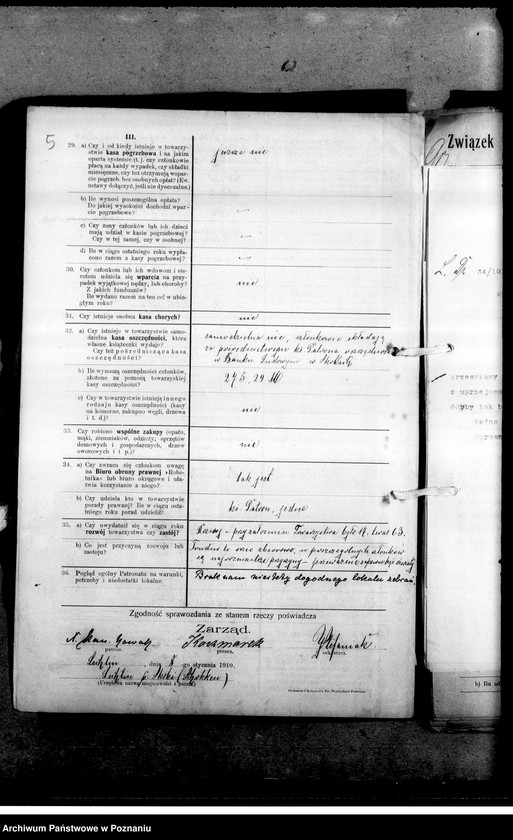 5
III.
29. a) Czy i od kiedy istnieje w towarzy-
stwie kasa pogrzebowa i na jakim
oparta systemie (t. j. czy członkowie
płacą na każdy wypadek, czy składki
miesięczne, czy też otrzymują wspar-
cie pogrzeb. bez osobnych opłat? (Kw.
ustawy dołączyć, jeśli nie dyecezalne.)
jeszcze nie
b) Ile wynosi poszczególna opłata?
Do jakiej wysokości dochodzi wpar-
cie pogrzebowe?
c) Czy żony członków lub ich dzieci
mają udział w kasie pogrzebowej?
Czy w tej samej, czy w osobnej?
d) Ile w ciągu ostatniego roku wypła-
cono razem z kasy pogrzebowej?
30. Czy członkom lub ich wdowom i sie-
rotom udziela się wparcia na przy-
padek wyjątkowej nędzy, lub choroby?
Z jakich funduszów?
Ile wydano razem na ten cel w ubie-
głym roku?
nie
31. Czy istnieje osobna kasa chorych?
nie
32. a) Czy istnieje w towarzystwie samo-
dzielna kasa oszczędności, która
własne książeczki wydaje?
Czy też pośrednicząca kasa
oszczędności?
samodzielna nie, członkowie składają
za pośrednictwem ks. Patrona oszczędności
w Banku Ludowym w Skokach
b) Ile wynoszą oszczędności członków,
złożone za pomocą towarzyskiej
kasy oszczędności?
275.29 M
c) Czy w towarzystwie istnieją innego
rodzaju kasy oszczędności (kasy
na komorne, zakupno węgli, drzewa
i t. d.)?
nie
33. Czy robiono wspólne zakupy (opału,
mąki, ziemniaków, odzieży; sprzętów
domowych i gospodarczych, drzew
owocowych i t p.)?
nie
34. a) Czy zwraca się członkom uwagę
na Biuro obrony prawnej »Robo-
tnika« lub biuro okręgowe i uła-
twia korzystanie z niego?
tak jest
b) Czy udziela kto w towarzystwie
porady prawnej? Ile w ciągu osta-
tniego roku porad udzielił?
ks. Patron,
35. a) Czy uwydatnił się w ciągu roku
rozwój towarzystwa czy zastój?
Rozwój – przy założeniu Towarzystwa było 19, teraz 63.
b) Co jest przyczyną rozwoju lub
zastoju?
Trudno to
36. Pogląd ogólny Patronatu na warunki,
potrzeby i niedostatki lokalne.
Brak nam niestety dogodnego lokalu zebrań.
Zgodność sprawozdania ze stanem rzeczy poświadcza
Zarząd.
patron.
Kaczmarek
prezes.
sekretarz.
dnia 5 -go stycznia 1910.
(Schokken)
(Urzędowa nazwa miejscowości i poczta)
Związek
L. Dz.
b) Ilu
Archiwum Państwowe w Poznaniu